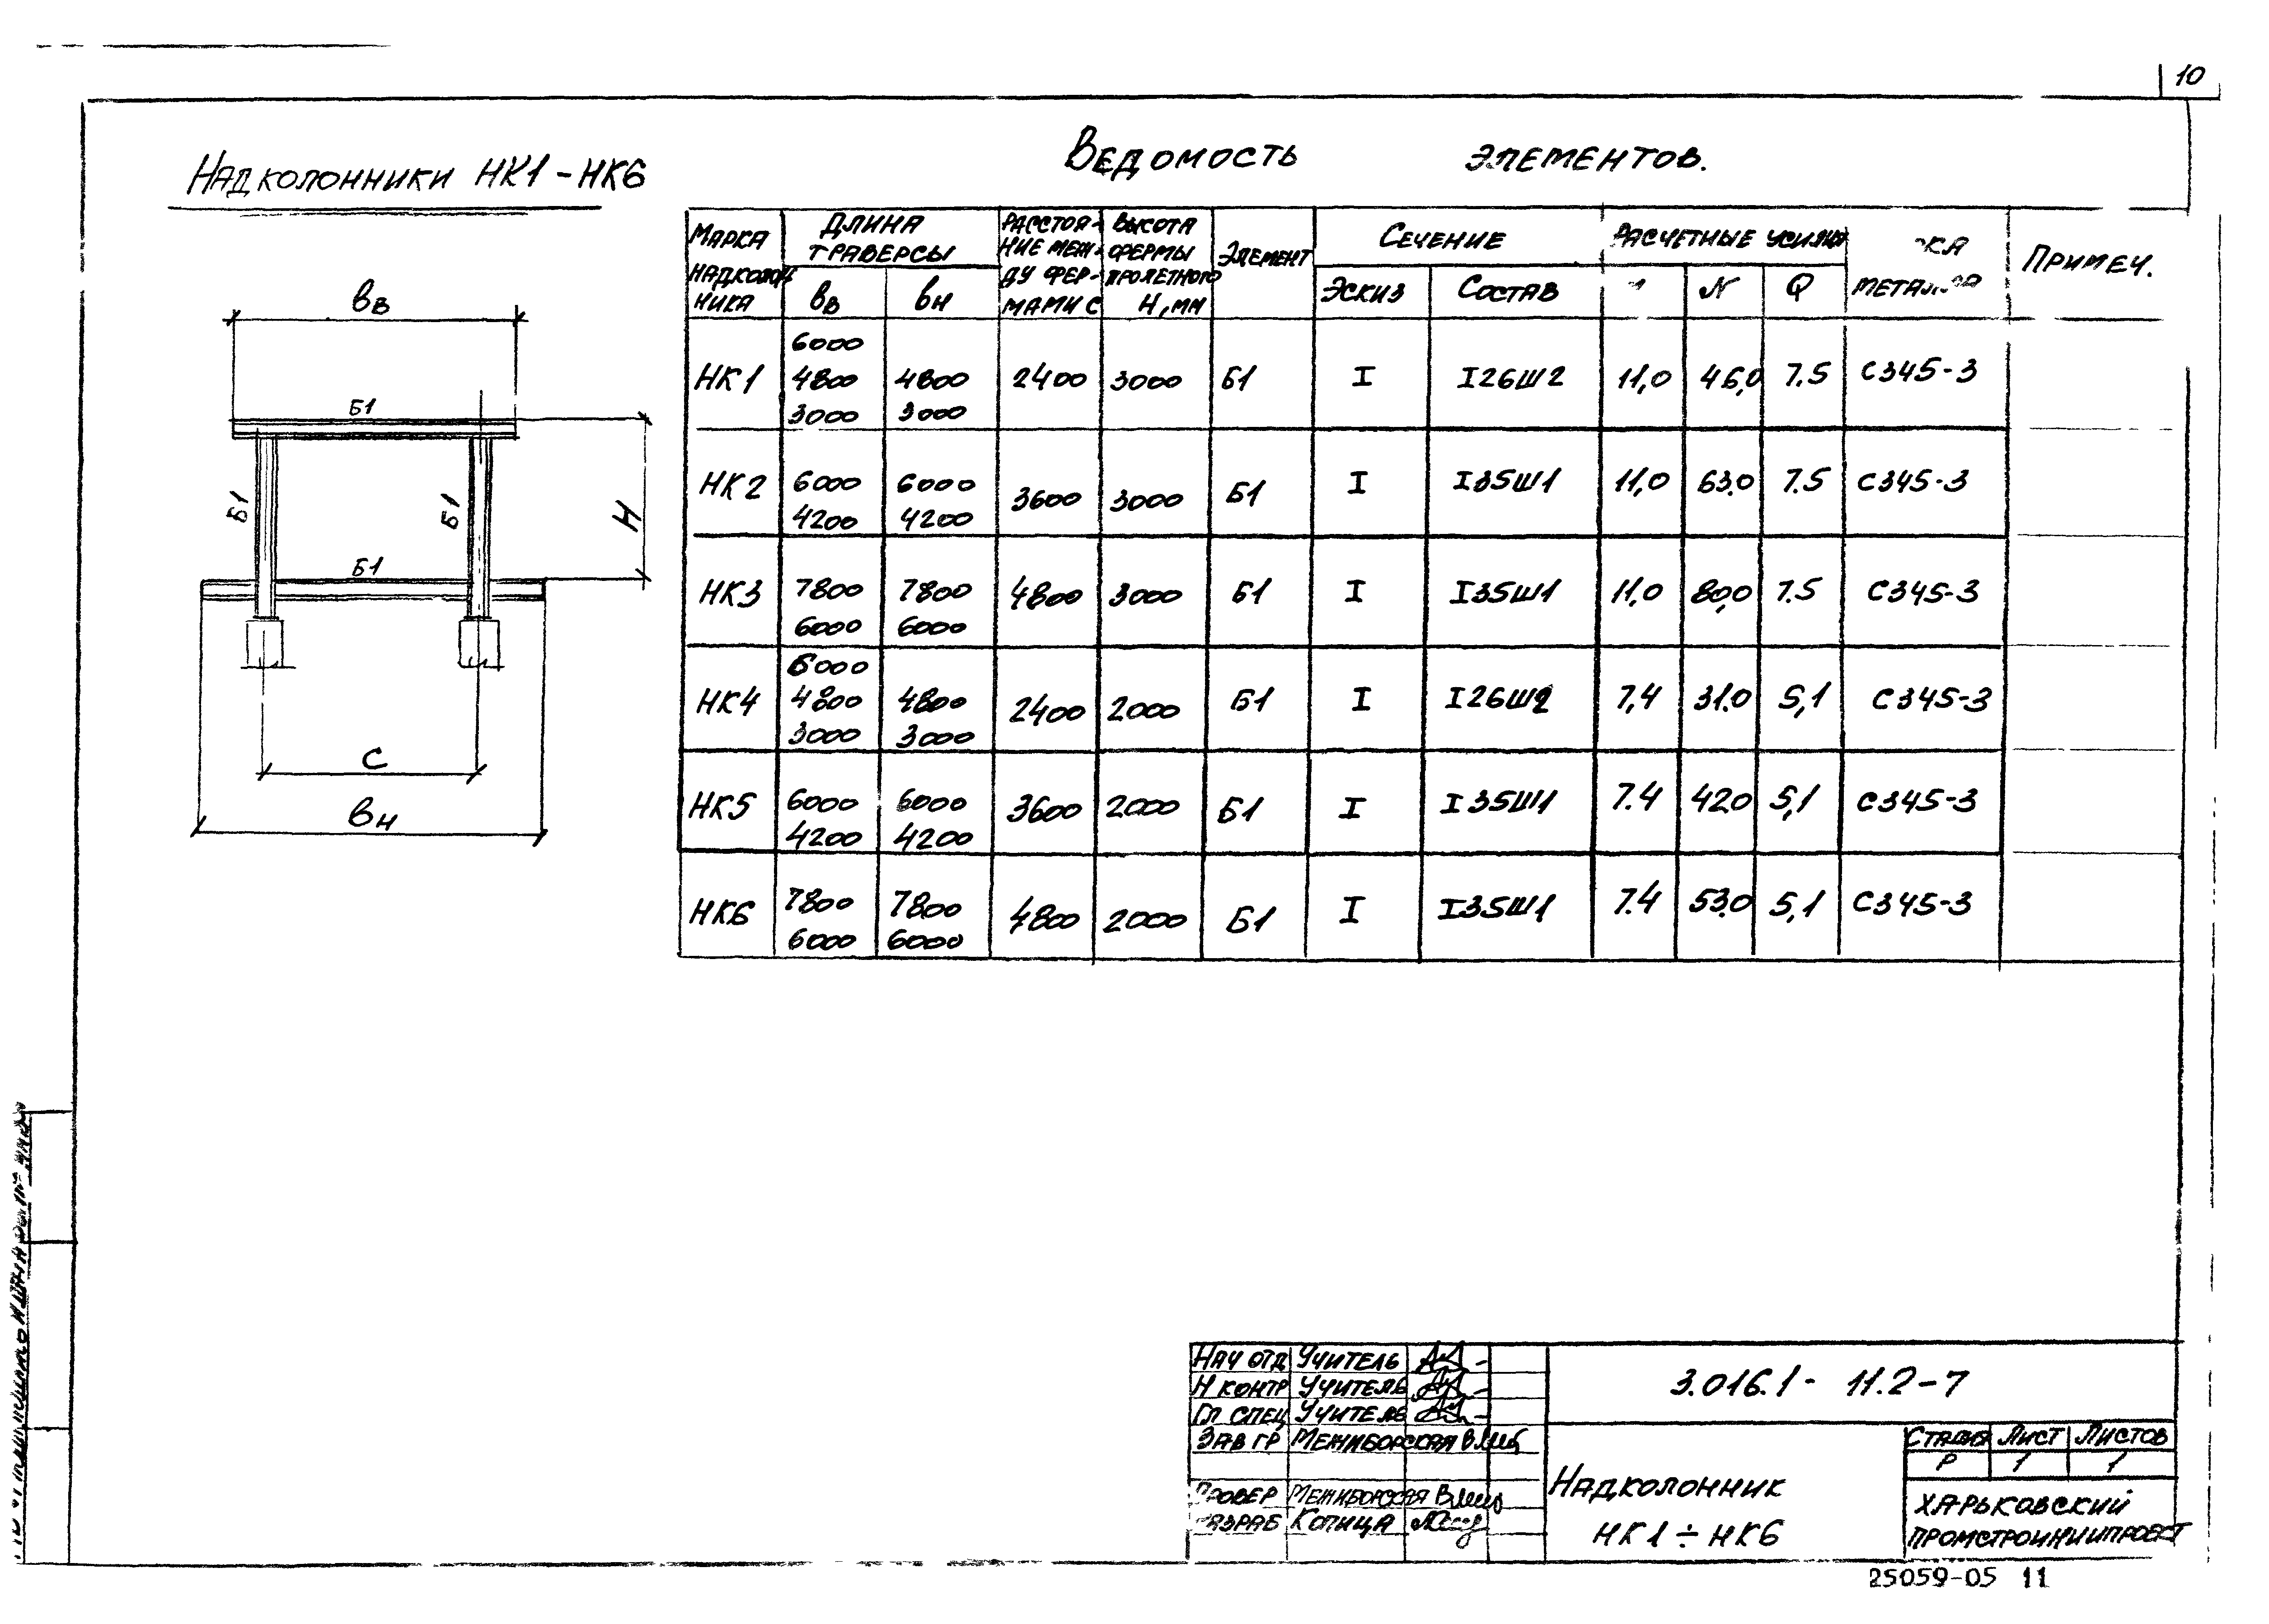 10
Надколонники НК1 - НК6
Ведомость элементов.
вв
Б1
Б1 Б1 Н
Б1
С
вн
Марка надколонника | Длина траверсы | Расстояние между фермами С | Высота фермы пролетного Н, мм | Элемент | Сечение | Расчетные усилия | металла | Примеч.
вв | вн | Эскиз | Состав | N | Q
НК1 | 6000 4800 3000 | 4800 3000 | 2400 | 3000 | Б1 | I | I26Ш2 | 11,0 | 46,0 | 7.5 | С345-3
НК2 | 6000 4200 | 6000 4200 | 3600 | 3000 | Б1 | I | I35Ш1 | 11,0 | 63.0 | 7.5 | С345-3
НК3 | 7800 6000 | 7800 6000 | 4800 | 3000 | Б1 | I | I35Ш1 | 11,0 | 80,0 | 7.5 | С345-3
НК4 | 6000 4800 3000 | 4800 3000 | 2400 | 2000 | Б1 | I | I26Ш2 | 7,4 | 31.0 | 5,1 | С345-3
НК5 | 6000 4200 | 6000 4200 | 3600 | 2000 | Б1 | I | I35Ш1 | 7.4 | 42.0 | 5,1 | С345-3
НК6 | 7800 6000 | 7800 6000 | 4800 | 2000 | Б1 | I | I35Ш1 | 7.4 | 53.0 | 5,1 | С345-3
Нач отд Учитель
Н контр Учитель
Гл спец Учитель
Зав гр Межиборская
Провер Межиборская
Разраб Копица
3.016.1 - 11.2-7
Надколонник
НК1 ÷ НК6
Стадия Лист Листов
Р 1 1
Харьковский
Промстройниипроект
25059-05 11